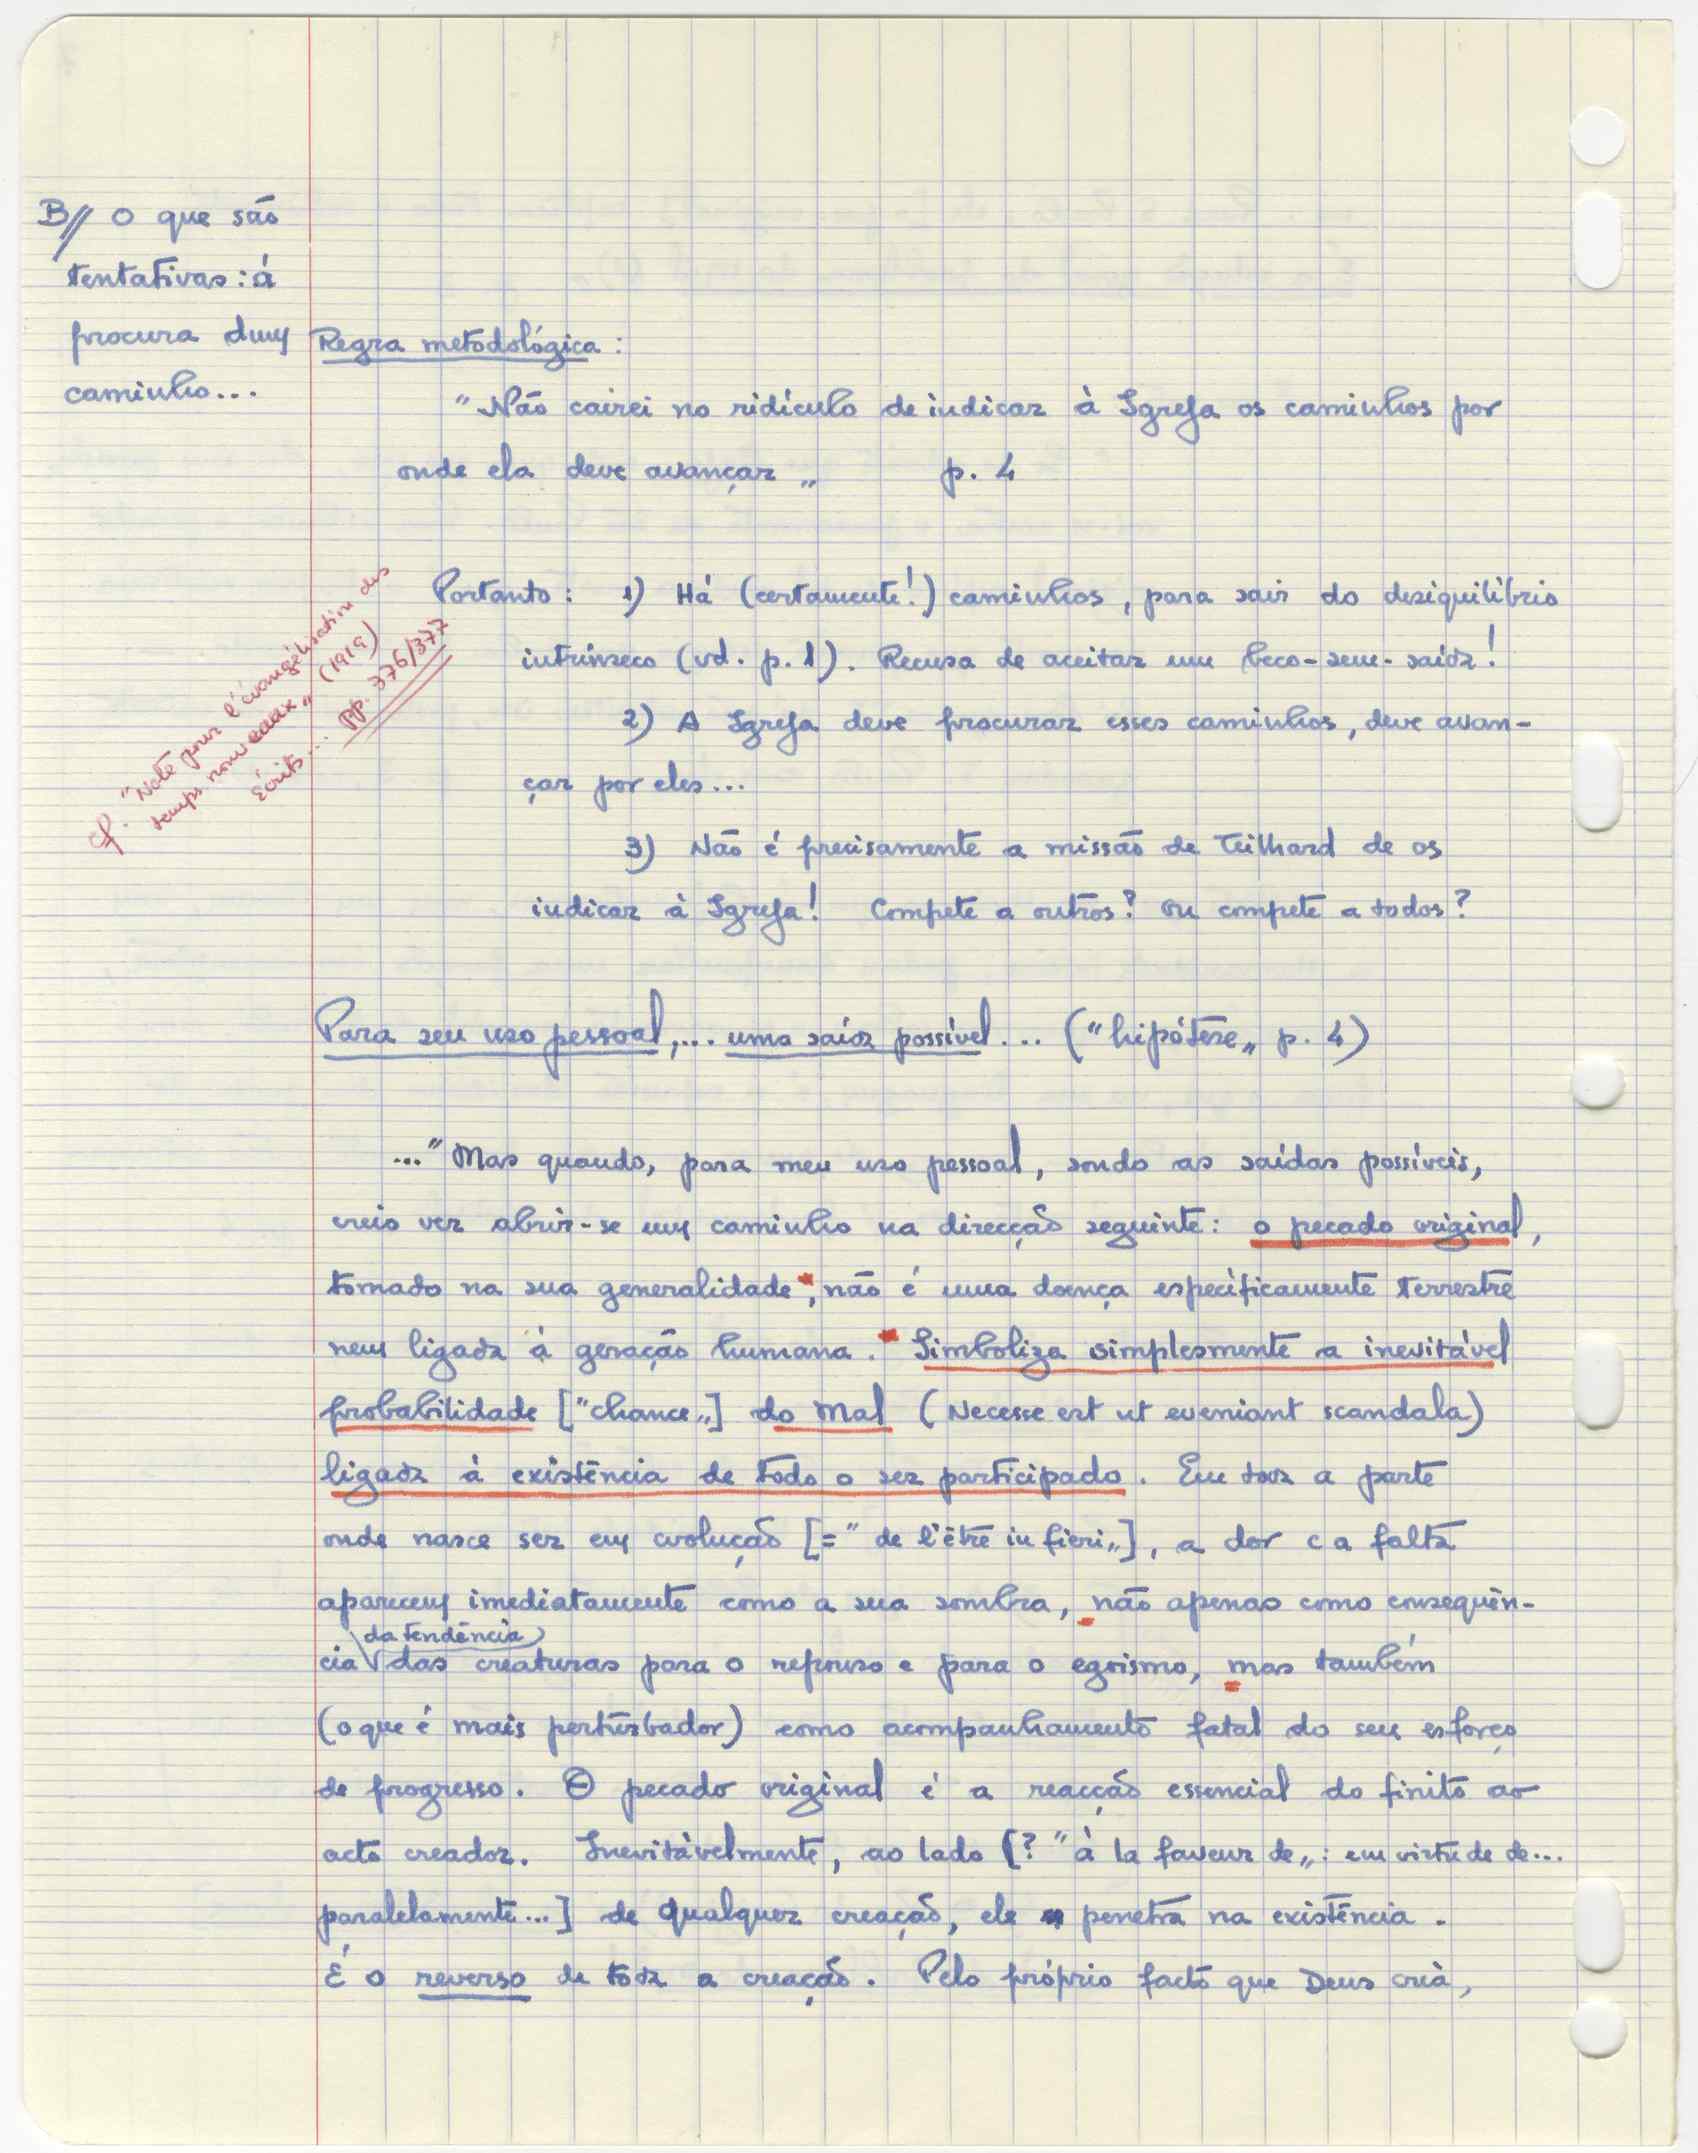 B// O que são
tentativas: á
procura dum
caminho...
Regra metodológica:
"Não cairei no ridículo de indicar à Igreja os caminhos por
onde ela deve avançar„ p. 4
cf. "Note pour l'évangélisation des
temps nouveaux„ (1919)
Écrits... pp. 376/377
Portanto: 1) Há (certamente!) caminhos, para sair do desiquilíbrio
intrínseco (vd. p. 1). Recusa de aceitar um beco-sem-saída!
2) A Igreja deve procurar esses caminhos, deve avan-
çar por eles...
3) Não é precisamente a missão de Teilhard de os
indicar à Igreja! Compete a outros? Ou compete a todos?
Para seu uso pessoal,... uma saída possível... ("hipótese„ p. 4)
..."Mas quando, para meu uso pessoal, sondo as saídas possíveis,
creio ver abrir-se um caminho na direcção seguinte: o pecado original,
tomado na sua generalidade*, não é uma doença especìficamente terrestre
nem ligada à geração humana.* Simboliza simplesmente a inevitável
probabilidade ["chance„] do Mal (Necesse est ut eveniant scandala)
ligada à existência de todo o ser participado. Em toda a parte
onde nasce ser em evolução [="de l'être in fieri„], a dor e a falta
aparecem imediatamente como a sua sombra, não apenas como consequên-
cia da tendência das creaturas para o repouso e para o egoísmo, mas também
(o que é mais perturbador) como acompanhamento fatal do seu esforço
de progresso. O pecado original é a reacção essencial do finito ao
acto creador. Inevitàvelmente, ao lado [? "à la faveur de„: em virtude de...
paralelamente...] de qualquer creação, ele penetra na existência.
É o reverso de toda a creação. Pelo próprio facto que Deus cria,